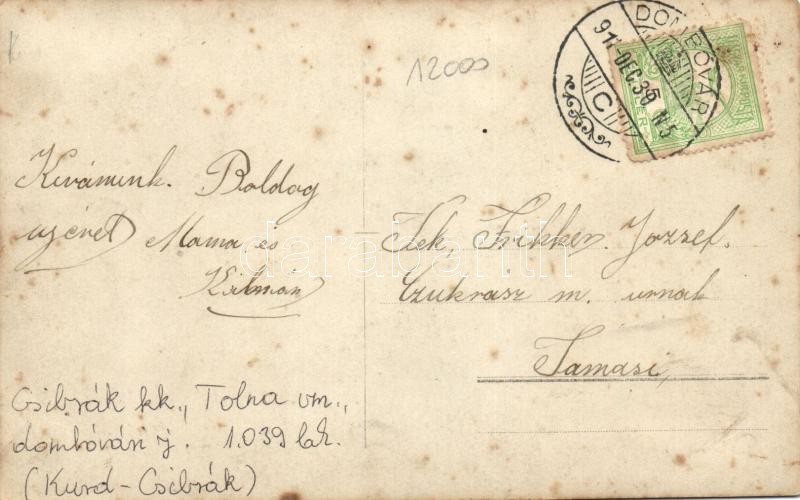 12000
DOMBÓVÁR
91 DEC. 30 N5
C
Kivánunk. Boldog
ujévet Mama és
Kálmán
Tek. Frikker. Jozzef.
Czukrasz m. urnak
Tamasi
Csibrák kk., Tolna vm.,
dombóvári j. 1.039 lak.
(Kurd-Csibrák)
darabanth